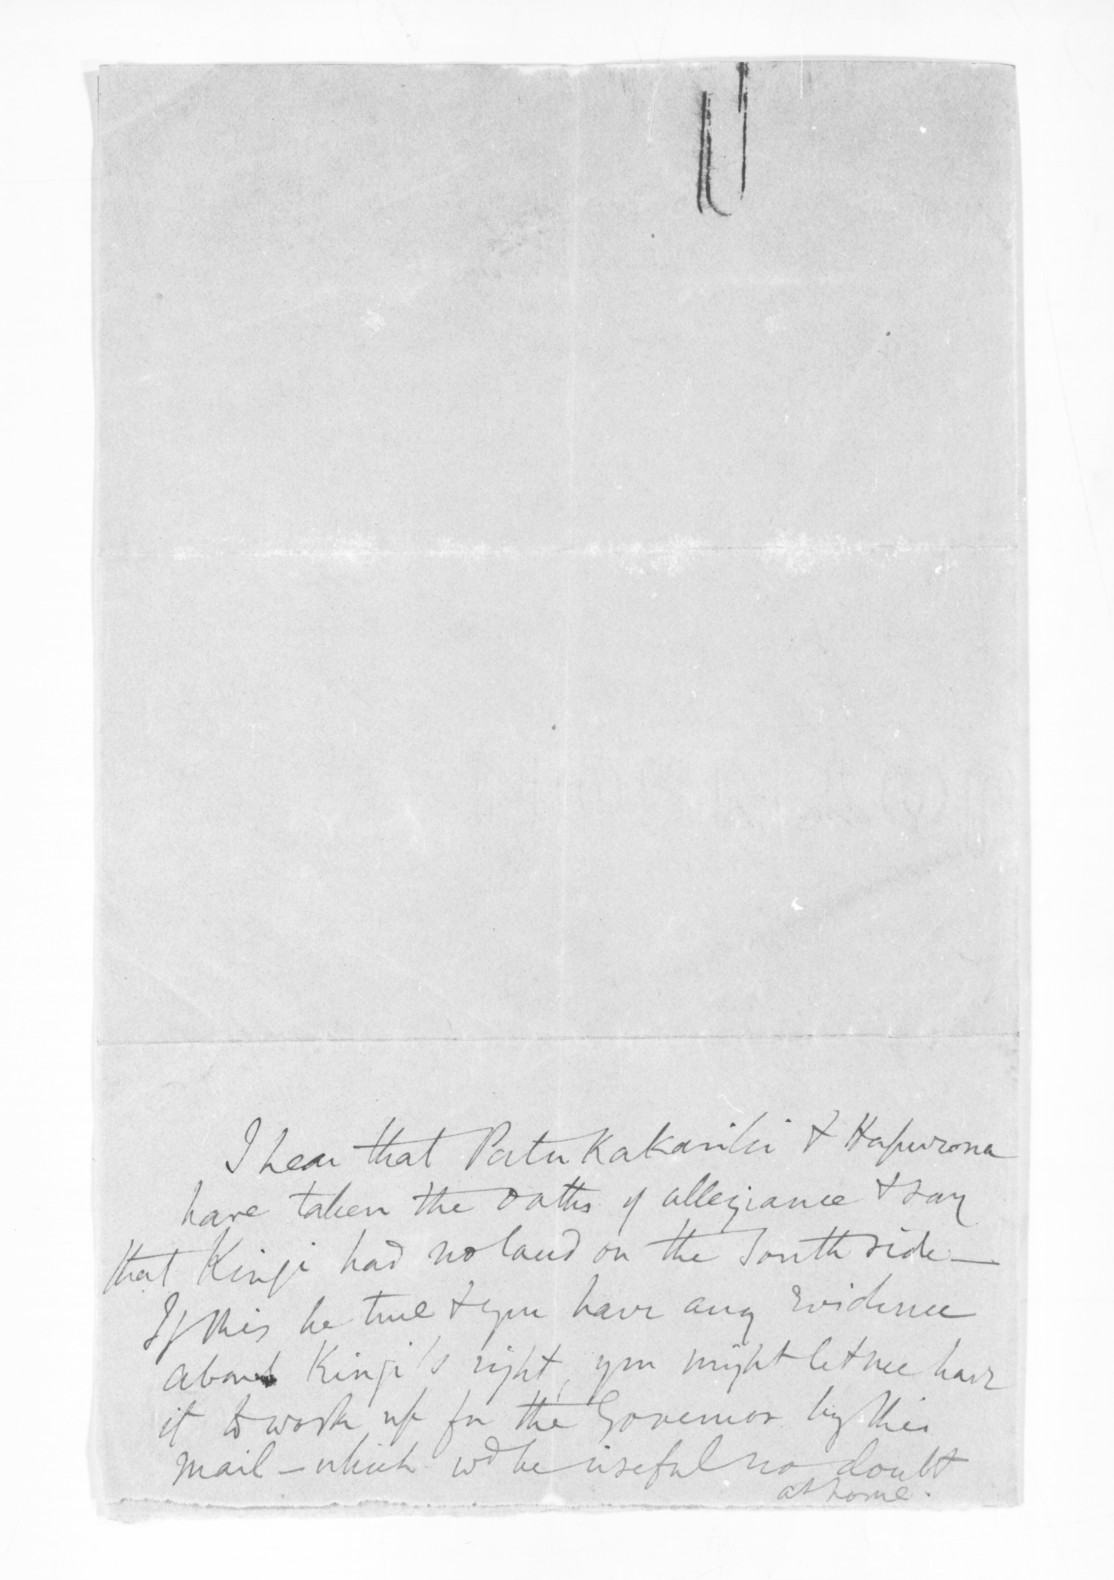 I hear that Patukakariki & Hapurona
have taken the oaths of allegiance & say
that Kingi had no land on the South side —
If this be true & you have any Evidence
about Kingi's right, you might let me have
it to work up for the Governor by this
mail — which wd be useful no doubt
at home.